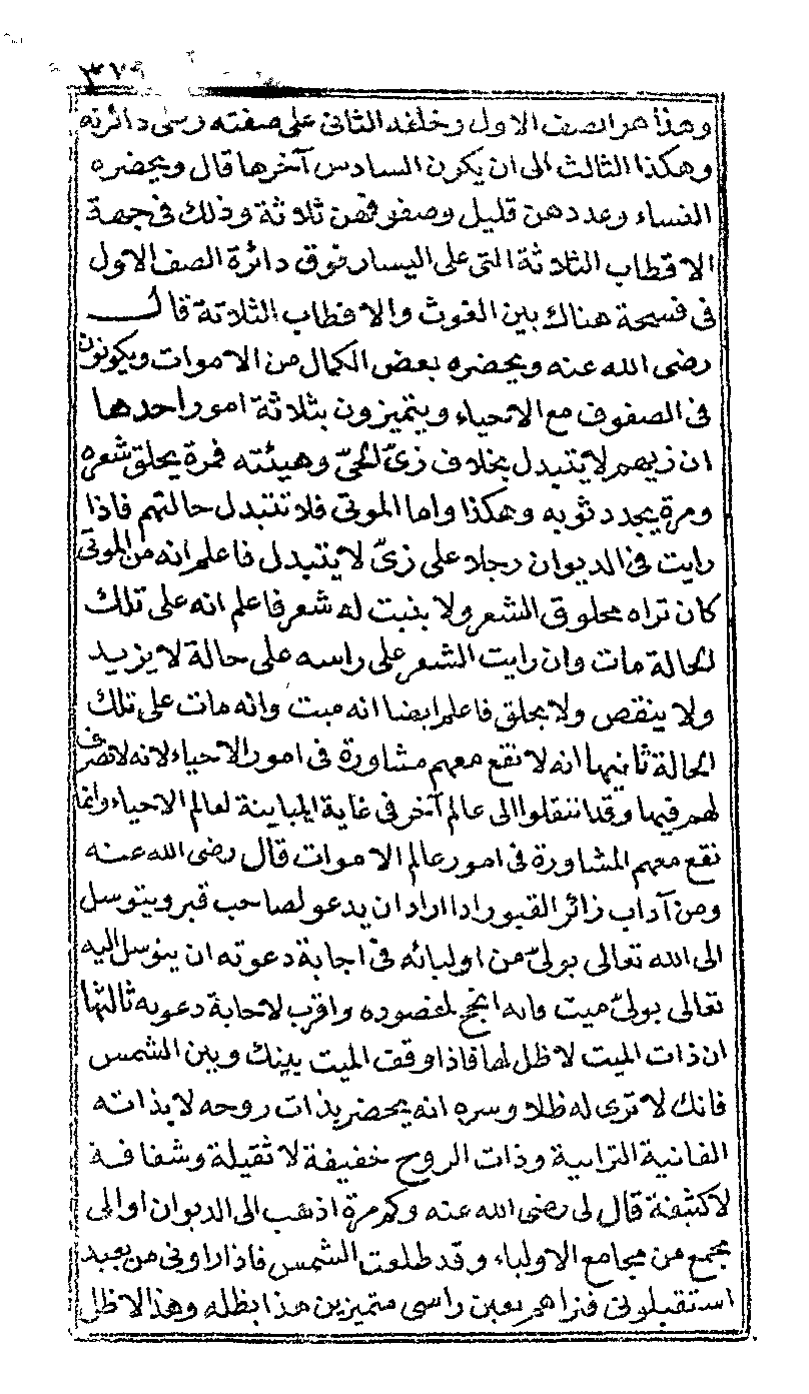 ٣٧٩
وهذا هو الصف الاول وخلفه الثانى على صفته وعلى دائرته
وهكذا الثالث الى ان يكون السادس آخرها قال ويحضره
النساء وعددهن قليل وصفوفهن ثلاثة وذلك فى جهة
الاقطاب الثلاثة التى على اليسار فوق دائرة الصف الاول
فى فسيحة هناك بين الغوث والاقطاب الثلاثة قال
رضى الله عنه ويحضره بعض الكمال من الاموات ويكونون
فى الصفوف مع الاحياء ويتميزون بثلاثة امور احدها
ان زيهم لا يتبدل بخلاف زىّ الحىّ وهيئته فمرة يحلق شعره
ومرة يجدد ثوبه وهكذا واما الموتى فلا تتبدل حالتهم فاذا
رايت فى الديوان رجلا على زىّ لا يتبدل فاعلم انه من الموتى
كان تراه محلوق الشعر ولا ينبت له شعر فاعلم انه على تلك
الحالة مات وان رايت الشعر على راسه على حالة لا يزيد
ولا ينقص ولا يحلق فاعلم ايضا انه ميت وانه مات على تلك
الحالة ثانيها انه لا تقع معهم مشاورة فى امور الاحياء لانه لا تصرف
لهم فيها وقد انتقلوا الى عالم آخر فى غاية المباينة لعالم الاحياء وانما
تقع معهم المشاورة فى امور عالم الاموات قال رضى الله عنه
ومن آداب زائر القبور اذا اراد ان يدعو لصاحب قبر ويتوسل
الى الله تعالى بولىّ من اوليائه فى اجابة دعوته ان يتوسل اليه
تعالى بولىّ ميت فانه انجح لمقصوده واقرب لاجابة دعوته ثالثها
ان ذات الميت لا ظل لها فاذا وقف الميت بينك وبين الشمس
فانك لا ترى له ظلا وسره انه يحضر بذات روحه لا بذاته
الفانية الترابية وذات الروح خفيفة لا ثقيلة وشفافة
لا كثيفة قال لى رضى الله عنه وكم مرة اذهب الى الديوان او الى
مجمع من مجامع الاولياء وقد طلعت الشمس فاذا راونى من بعيد
استقبلونى فنراهم بعين راسى متميزين هذا بظله وهذا لا ظل